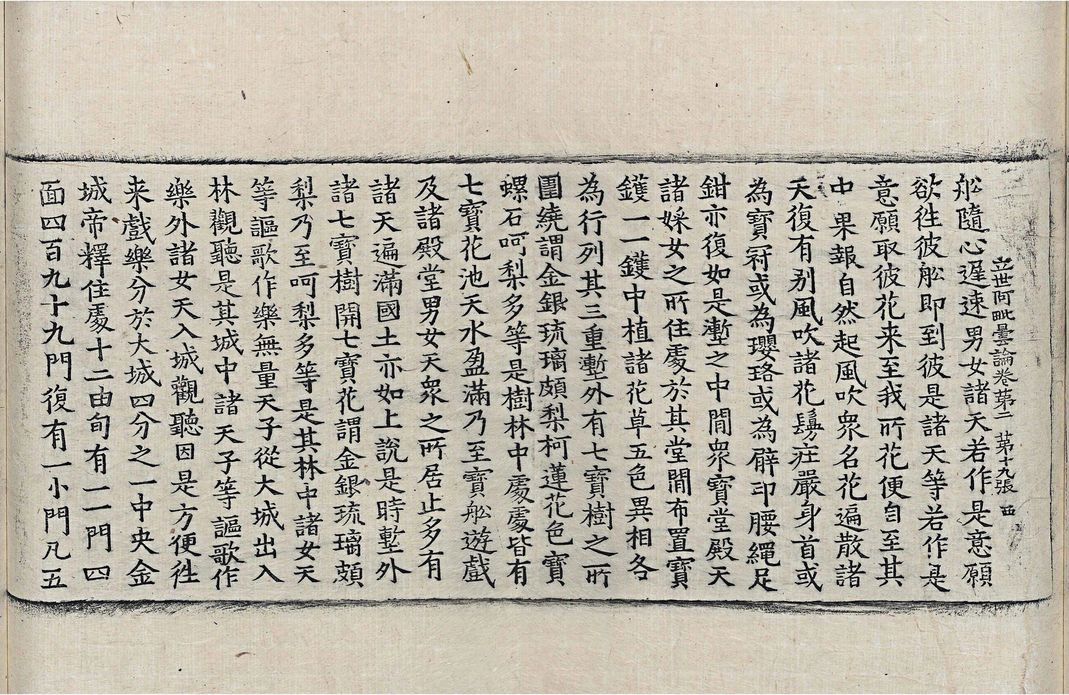 立世阿毗曇論卷第二 第十九張
舩隨心遲速男女諸天若作是意願
欲往彼舩即到彼是諸天等若作是
意願取彼花来至我所花便自至其
中果報自然起風吹衆名花遍散諸
天復有别風吹諸花鬘㽵嚴身首或
為寶冠或為瓔珞或為臂印腰繩足
鉗亦復如是壍之中間衆寶堂殿天
諸婇女之所住處於其堂間布置寶
鑊一一鑊中植諸花草五色異相各
為行列其三重壍外有七寶樹之所
圍繞謂金銀琉璃頗梨柯蓮花色寶
螺石呵梨多等是樹林中處處皆有
七寶花池天水盈滿乃至寶舩遊戲
及諸殿堂男女天衆之所居止多有
諸天遍滿國土亦如上說是時壍外
諸七寶樹開七寶花謂金銀琉璃頗
梨乃至呵梨多等是其林中諸女天
等謳歌作樂無量天子從大城出入
林觀聽是其城中諸天子等謳歌作
樂外諸女天入城觀聽因是方便往
来戲樂分於大城四分之一中央金
城帝釋住處十二由旬有一一門四
面四百九十九門復有一小門凡五